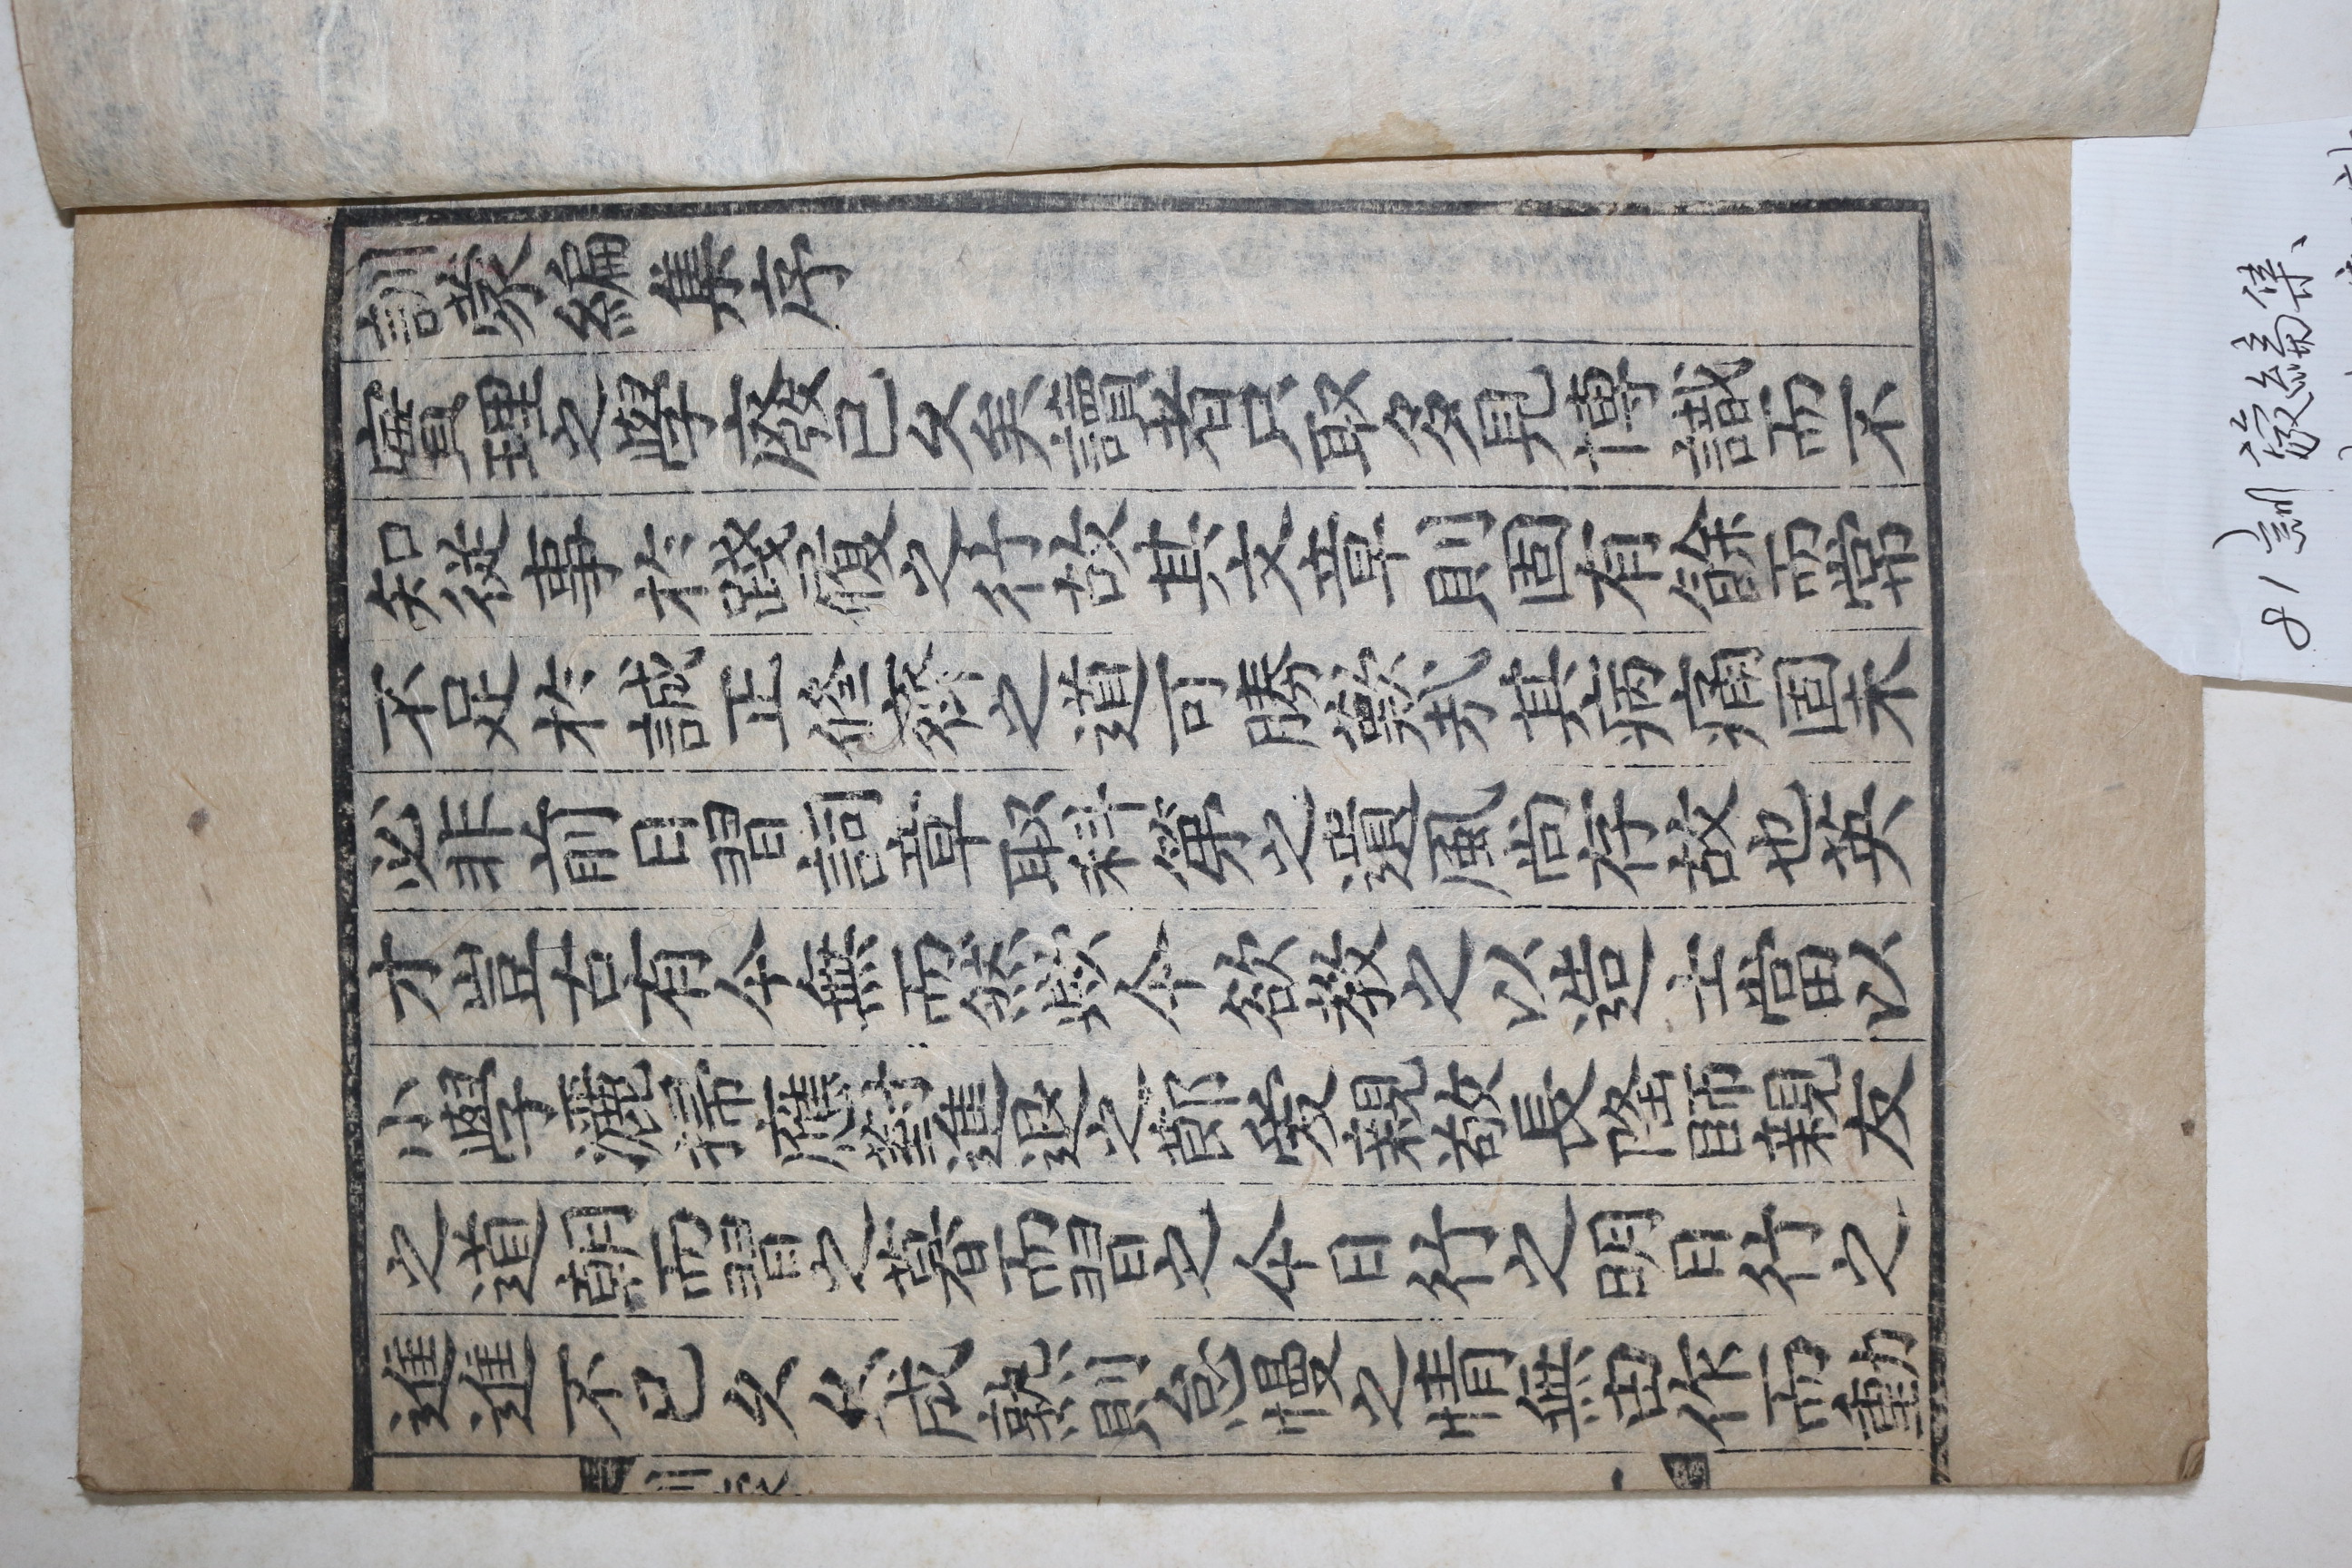 訓蒙編集序
實理之學廢已久矣讀者只取多見博識而不
知從事於踐履之行故其文章則固有餘而常
不足於誠正修齊之道可勝歎哉其病痛固未
必非前日習詞章取科第之遺風尚存故也英
才豈古有今無而然歟今欲教之以造士當以
小學灑掃應對進退之節愛親敬長隆師親友
之道朝而習之暮而習之今日行之明日行之
進進不已久久成熟則怠慢之情無由作而動
訓蒙
一
81 訓蒙編集